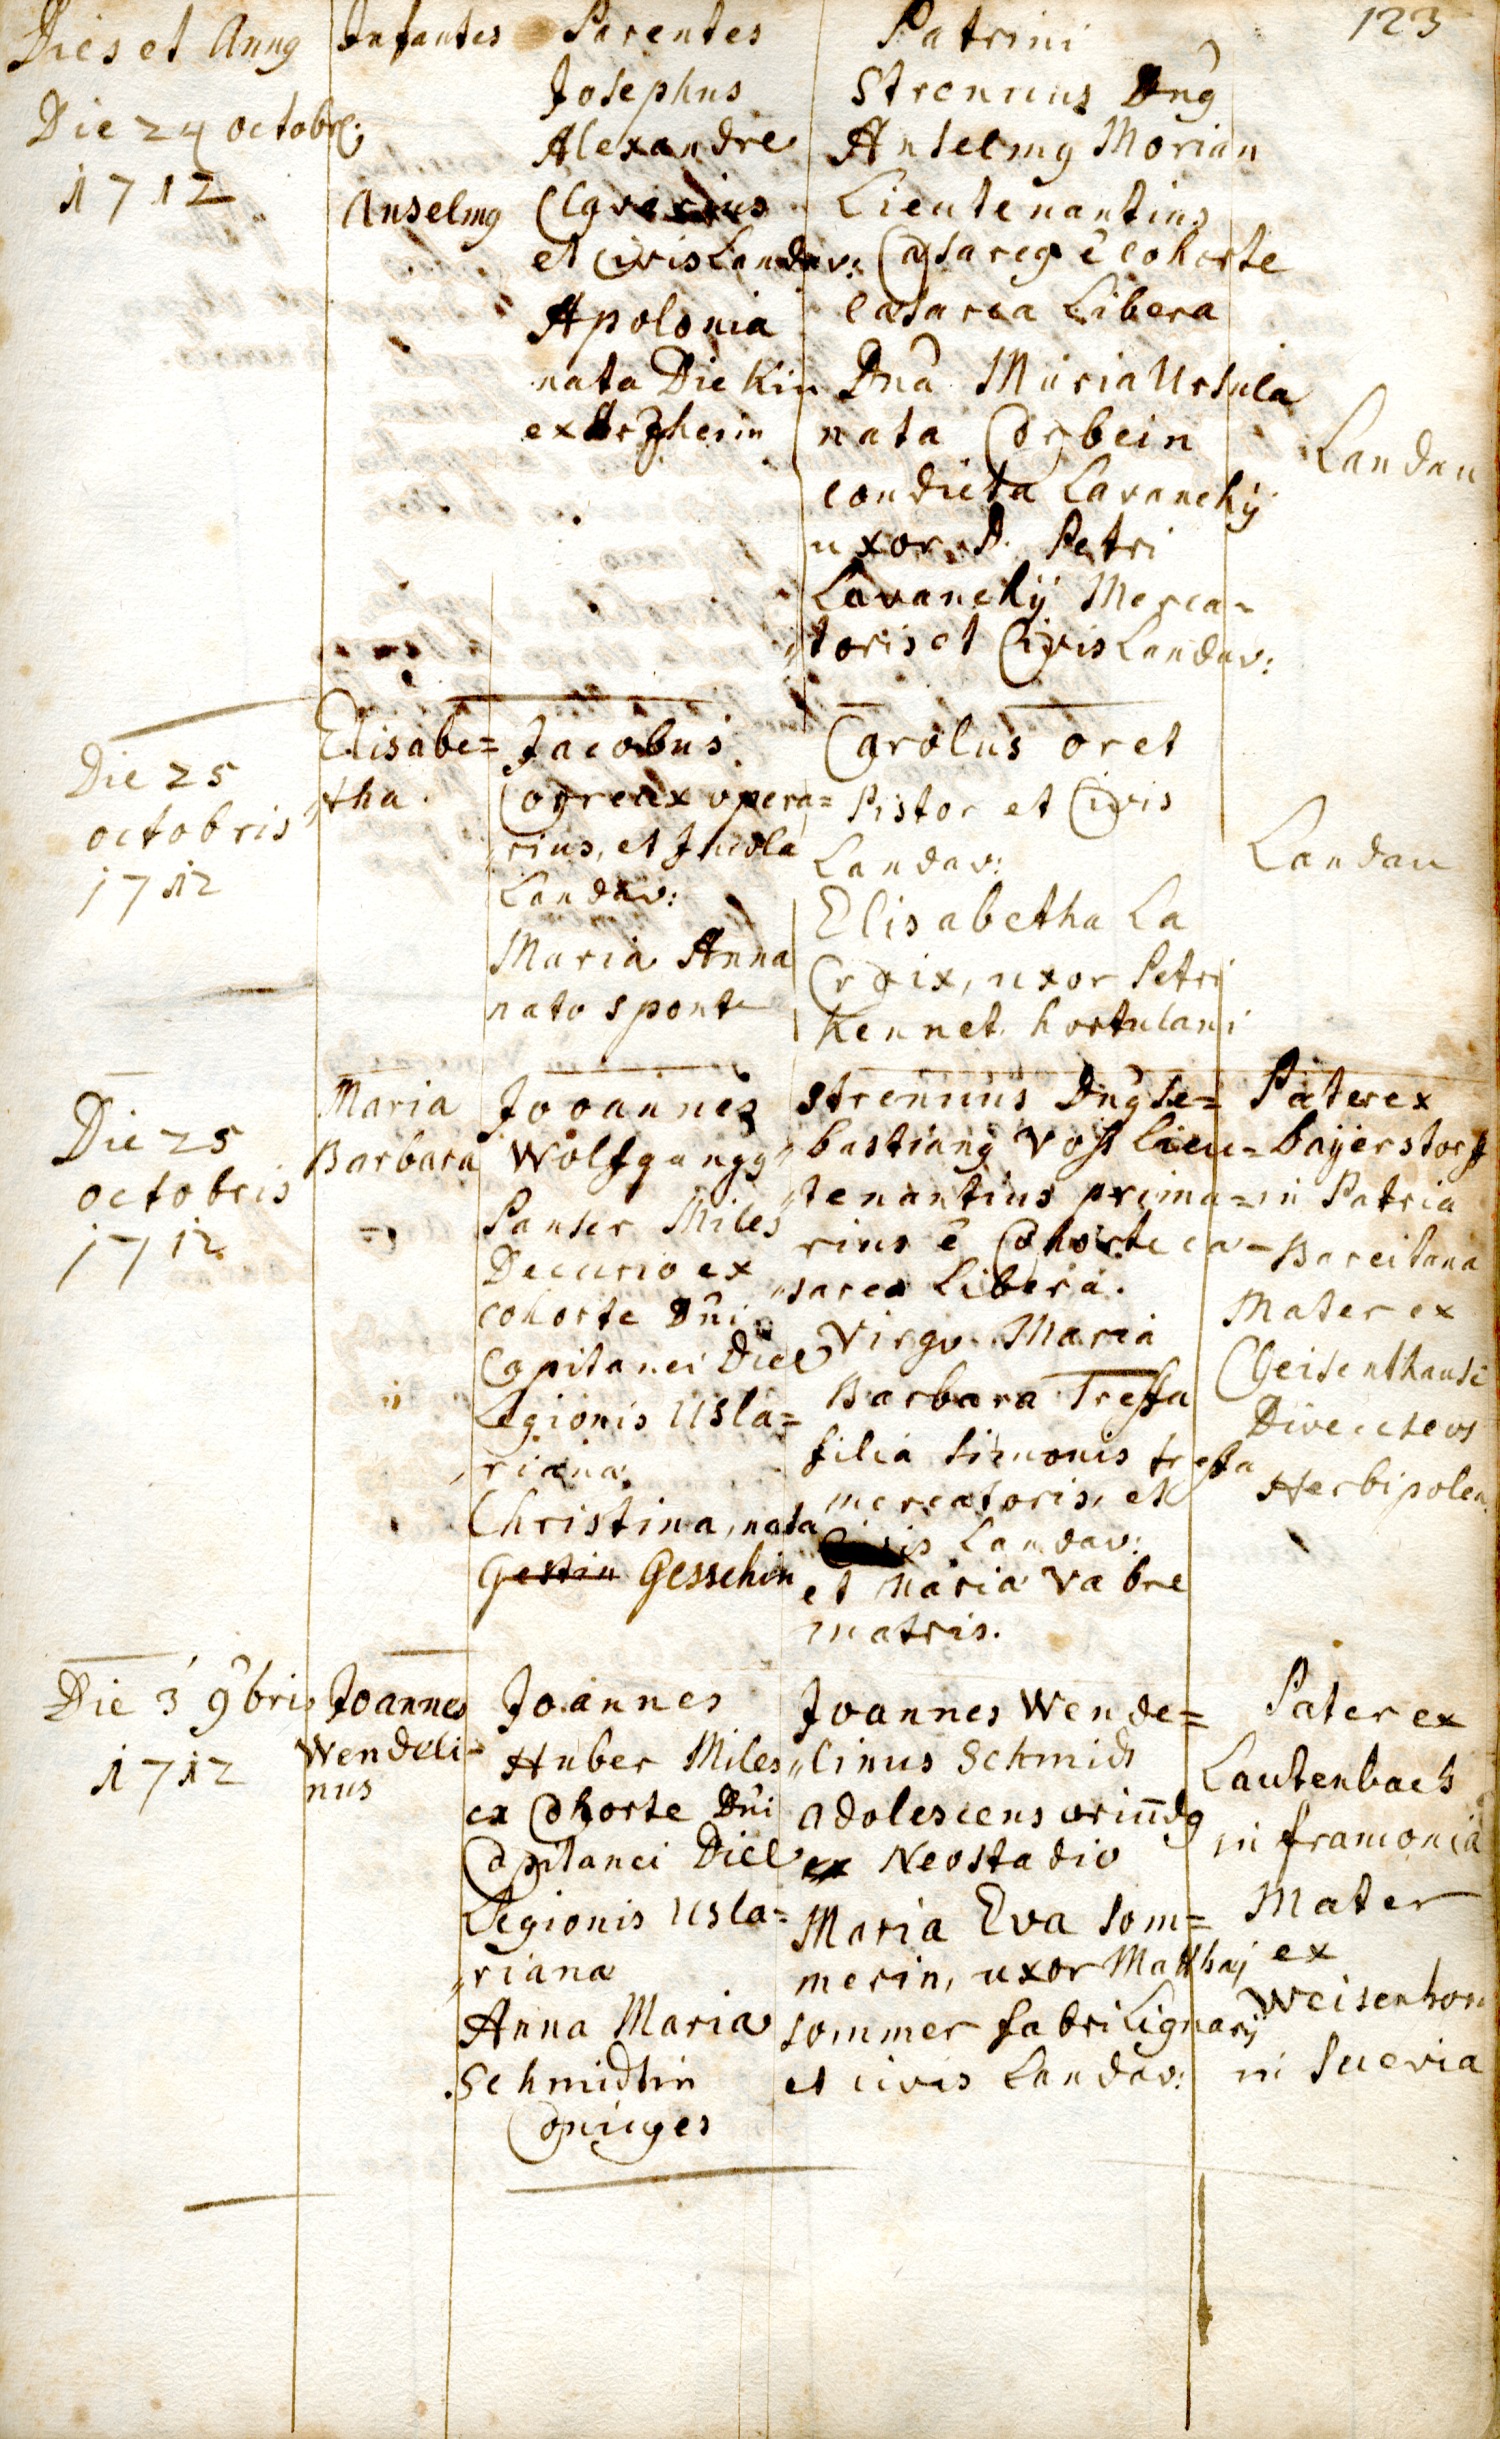 123
Dies et Annq
Infantes
Parentes
Patrini
Die 24 octobr:
1712
Anselmq
Josephus
Alexandre
et Civis Landav:
Apolonia
nata Die Kin
Strenuus Dnq
Anselmq Morian
Lieutenantius
Cæsareq è cohorte
cæsarea Libera
Dna Maria Ursula
nata Corbein
condicta Lavanchÿ
uxor D. Petri
Lavanchÿ Merca-
toris et Civis Landav:
Landau
Die 25
octobris
1712
Elisabe=
tha.
Jacobus
opera=
rius, et Incola
Landav:
Maria Anna
nata spont
Carolus oret
Pistor et Civis
Landav:
Elisabetha La
Croix, uxor Petri
Kennet hortulani
Landau
Die 25
octobris
1712
Maria
Barbara
Jooannes
Wolfgangq
Panser Miles
Decurio ex
cohorte Dni
Capitanei Diel
Legionis Usla=
riana
Christina, nata
Gestin Gesschin
Strenuus Dnq Se=
bastianq Voss Lieu=
tenantius prima=
rius è Cohorte cæ-
sarea Libera.
Virgo Maria
Barbara Tressa
filia Simonis tressa
mercatoris, et
Civis Landav:
et Maria Vabre
matris.
Pater ex
bayerstorf
in Patria
Bareitana
Mater ex
Herbipolen:
Die 3 9bris
1712
Joannes
Wendeli-
nus
Joannes
Huber Miles
ex Cohorte Dni
Capitanei Diel
Legionis Usla=
riana
Anna Maria
Schmidtin
Coniuges
Joannes Wende=
linus Schmidt
adolescens oriundq
ex Neostadio
Maria Eva Som=
merin, uxor Matthæj
Sommer fabri Lignarij
et civis Landav:
Pater ex
Lautenbach
in franconia
Mater
ex
Weisenhorn
in Suevia